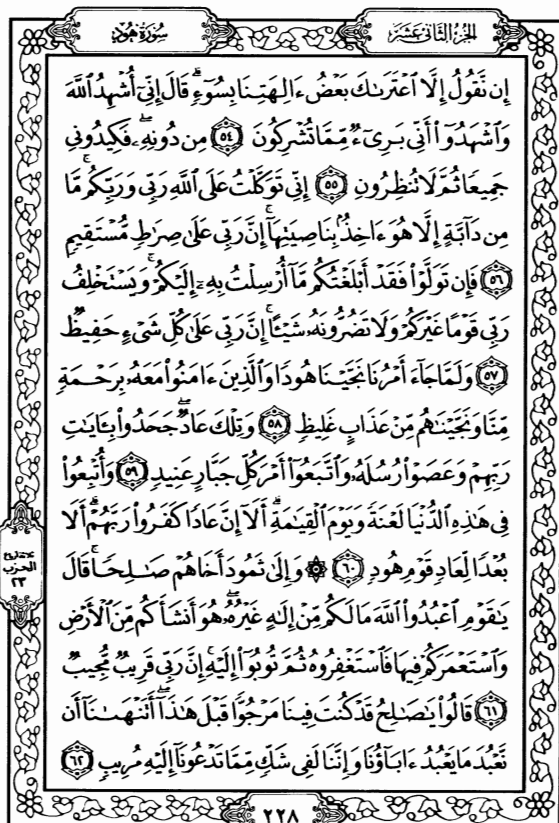 الجزء الثاني عشر
سورة هود
إِن نَّقُولُ إِلَّا ٱعْتَرَىٰكَ بَعْضُ ءَالِهَتِنَا بِسُوٓءٍ ۗ قَالَ إِنِّىٓ أُشْهِدُ ٱللَّهَ
وَٱشْهَدُوٓا۟ أَنِّى بَرِىٓءٌ مِّمَّا تُشْرِكُونَ ٥٤ مِن دُونِهِۦ ۖ فَكِيدُونِى
جَمِيعًا ثُمَّ لَا تُنظِرُونِ ٥٥ إِنِّى تَوَكَّلْتُ عَلَى ٱللَّهِ رَبِّى وَرَبِّكُم ۚ مَّا
مِن دَآبَّةٍ إِلَّا هُوَ ءَاخِذٌۢ بِنَاصِيَتِهَآ ۚ إِنَّ رَبِّى عَلَىٰ صِرَٰطٍ مُّسْتَقِيمٍ
٥٦ فَإِن تَوَلَّوْا۟ فَقَدْ أَبْلَغْتُكُم مَّآ أُرْسِلْتُ بِهِۦٓ إِلَيْكُمْ ۚ وَيَسْتَخْلِفُ
رَبِّى قَوْمًا غَيْرَكُمْ وَلَا تَضُرُّونَهُۥ شَيْـًٔا ۚ إِنَّ رَبِّى عَلَىٰ كُلِّ شَىْءٍ حَفِيظٌ
٥٧ وَلَمَّا جَآءَ أَمْرُنَا نَجَّيْنَا هُودًا وَٱلَّذِينَ ءَامَنُوا۟ مَعَهُۥ بِرَحْمَةٍ
مِّنَّا وَنَجَّيْنَٰهُم مِّنْ عَذَابٍ غَلِيظٍ ٥٨ وَتِلْكَ عَادٌ ۖ جَحَدُوا۟ بِـَٔايَٰتِ
رَبِّهِمْ وَعَصَوْا۟ رُسُلَهُۥ وَٱتَّبَعُوٓا۟ أَمْرَ كُلِّ جَبَّارٍ عَنِيدٍ ٥٩ وَأُتْبِعُوا۟
فِى هَٰذِهِ ٱلدُّنْيَا لَعْنَةً وَيَوْمَ ٱلْقِيَٰمَةِ ۗ أَلَآ إِنَّ عَادًا كَفَرُوا۟ رَبَّهُمْ ۗ أَلَا
بُعْدًا لِّعَادٍ قَوْمِ هُودٍ ٦٠ ۞ وَإِلَىٰ ثَمُودَ أَخَاهُمْ صَٰلِحًا ۚ قَالَ
يَٰقَوْمِ ٱعْبُدُوا۟ ٱللَّهَ مَا لَكُم مِّنْ إِلَٰهٍ غَيْرُهُۥ ۖ هُوَ أَنشَأَكُم مِّنَ ٱلْأَرْضِ
وَٱسْتَعْمَرَكُمْ فِيهَا فَٱسْتَغْفِرُوهُ ثُمَّ تُوبُوٓا۟ إِلَيْهِ ۚ إِنَّ رَبِّى قَرِيبٌ مُّجِيبٌ
٦١ قَالُوا۟ يَٰصَٰلِحُ قَدْ كُنتَ فِينَا مَرْجُوًّا قَبْلَ هَٰذَآ ۖ أَتَنْهَىٰنَآ أَن
نَّعْبُدَ مَا يَعْبُدُ ءَابَآؤُنَا وَإِنَّنَا لَفِى شَكٍّ مِّمَّا تَدْعُونَآ إِلَيْهِ مُرِيبٍ ٦٢
الحزب
٢٣
٢٢٨